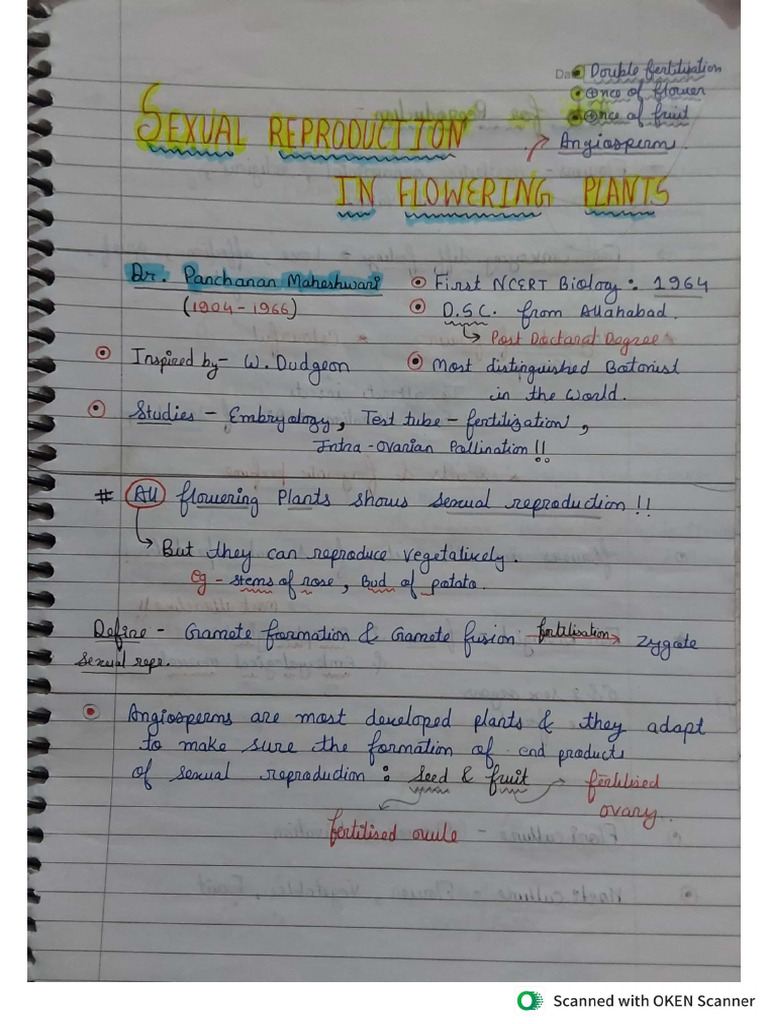 Date
Double fertilisation
⊕nce of flower
⊕nce of fruit
Angiosperm.
SEXUAL REPRODUCTION
IN FLOWERING PLANTS
Dr. Panchanan Maheshwari
(1904-1966)
First NCERT Biology: 1964
D.S.C. from Allahabad.
Post Doctoral Degree
Inspired by - W. Dudgeon
Most distinguished Botanist
in the world.
Studies - Embryology, Test tube - fertilization,
Intra-ovarian Pollination!!
# All flowering Plants shows sexual reproduction!!
But they can reproduce vegetatively.
Eg - stems of rose, Bud of potato.
Define - Gamete formation & Gamete fusion fertilisation Zygote
sexual repr.
Angiosperms are most developed plants & they adapt
to make sure the formation of end products
of sexual reproduction: seed & fruit fertilised
ovary.
fertilised ovule
Scanned with OKEN Scanner